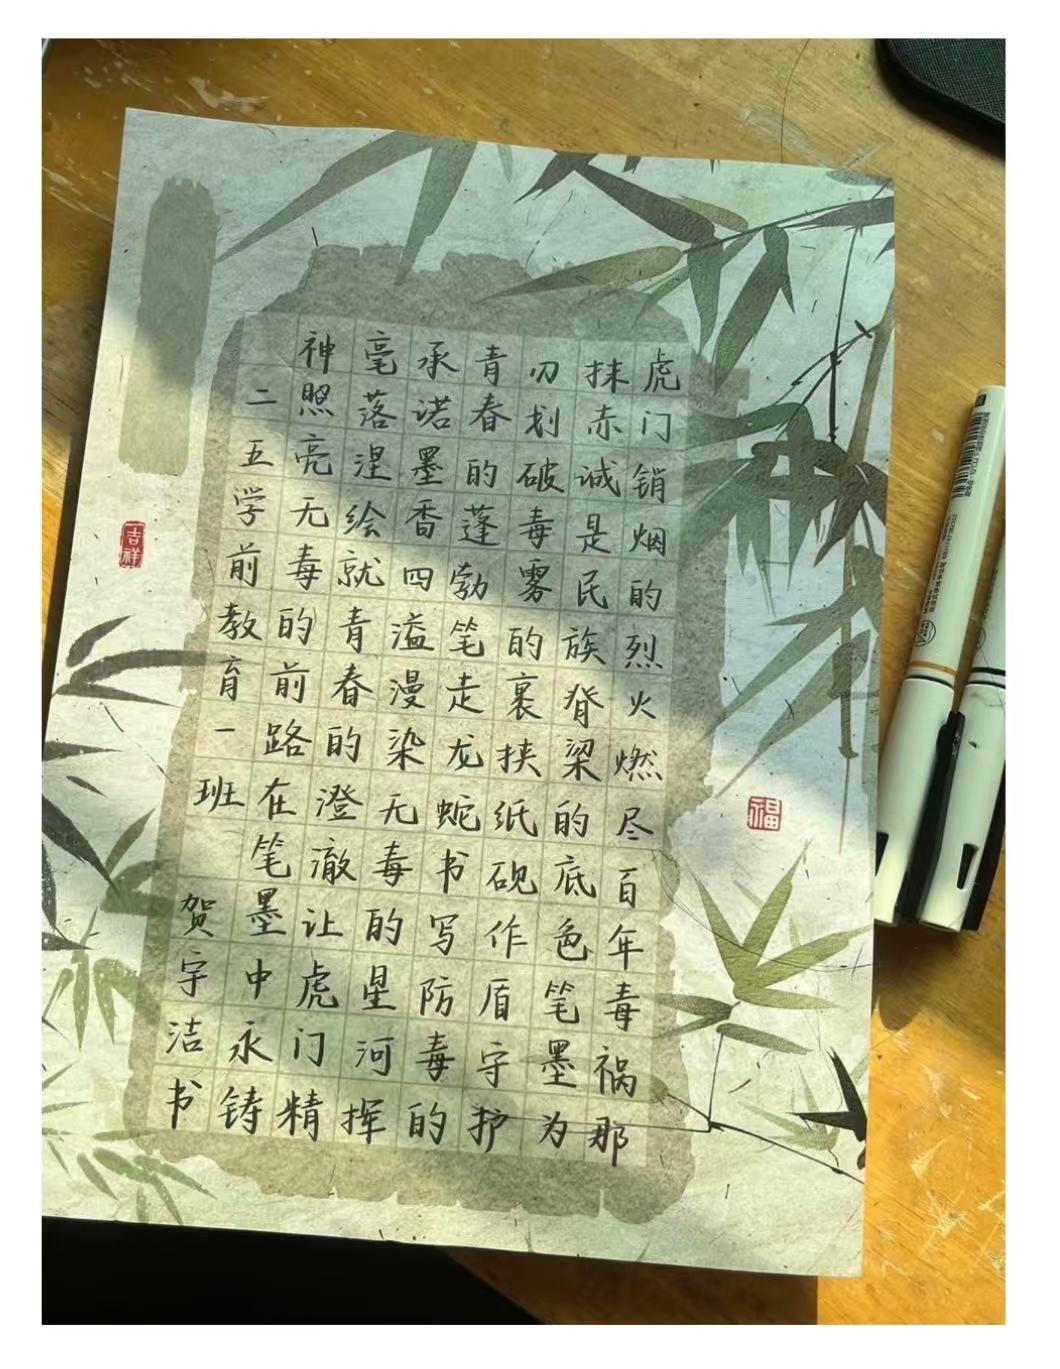 虎门销烟的烈火燃尽百年毒祸那
抹赤诚是民族脊梁的底色笔墨为
刃划破毒雾的裹挟纸砚作盾守护
青春的蓬勃笔走龙蛇书写防毒的
承诺墨香四溢漫染无毒的星河挥
毫落涅绘就青春的澄澈让虎门精
神照亮无毒的前路在笔墨中永铸
二五学前教育一班 贺宇洁书
福
吉祥